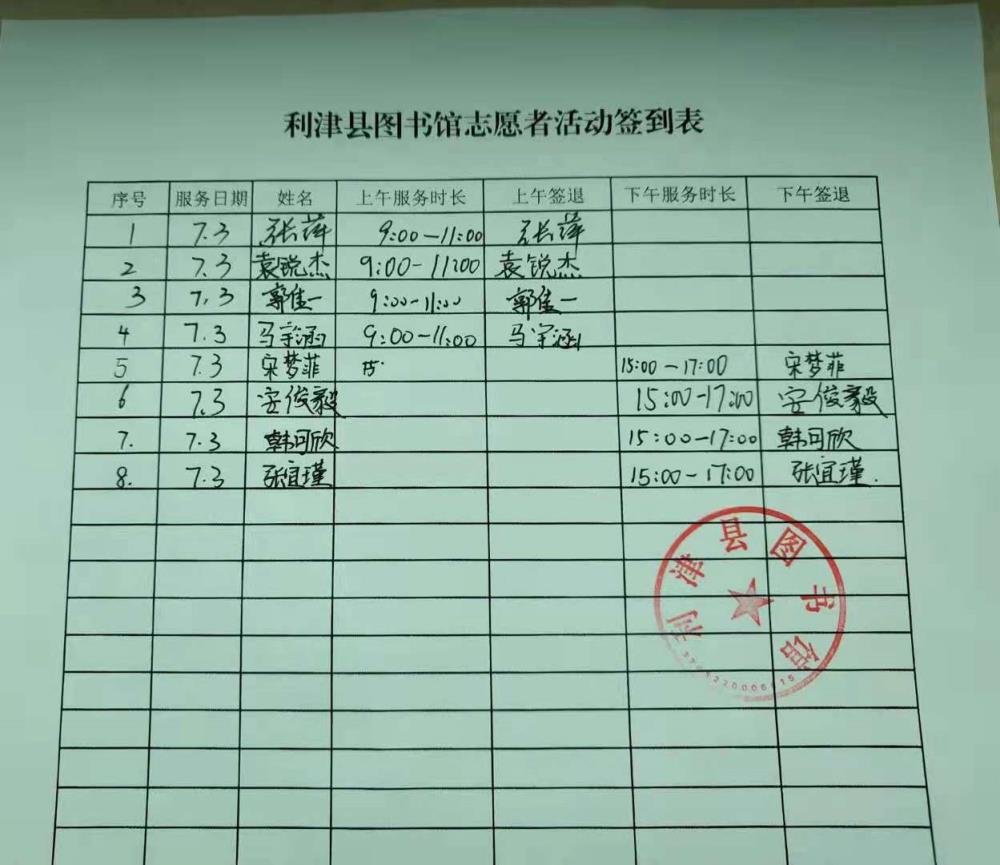 利津县图书馆志愿者活动签到表
序号 服务日期 姓名 上午服务时长 上午签退 下午服务时长 下午签退
1 7.3 张萍 9:00-11:00 张萍
2 7.3 袁锐杰 9:00-11:00 袁锐杰
3 7.3 郭佳一 9:00-11:00 郭佳一
4 7.3 马宇涵 9:00-11:00 马宇涵
5 7.3 宋梦菲 15:00-17:00 宋梦菲
6 7.3 安俊毅 15:00-17:00 安俊毅
7. 7.3 韩可欣 15:00-17:00 韩可欣
8. 7.3 张宜瑾 15:00-17:00 张宜瑾.
利津县图书馆